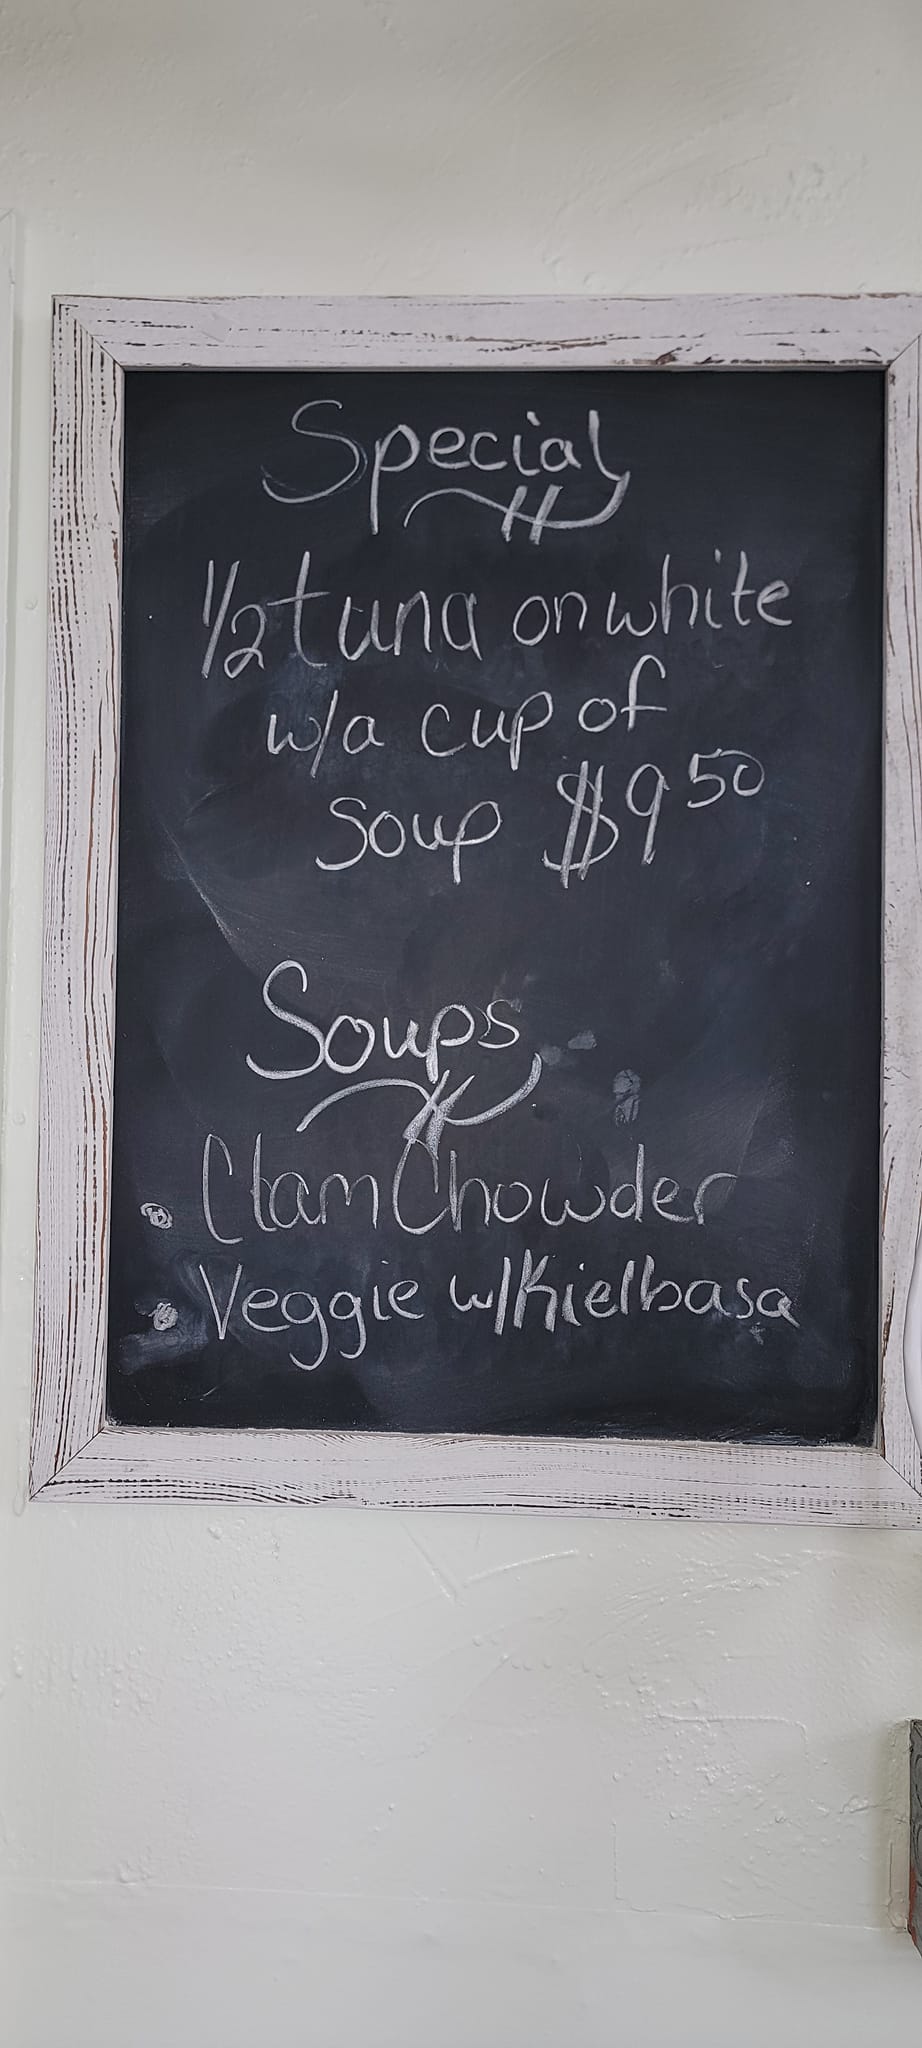 Special
1/2 tuna on white
w/a cup of
soup $9 50
Soups
• Clam Chowder
• Veggie w/Kielbasa